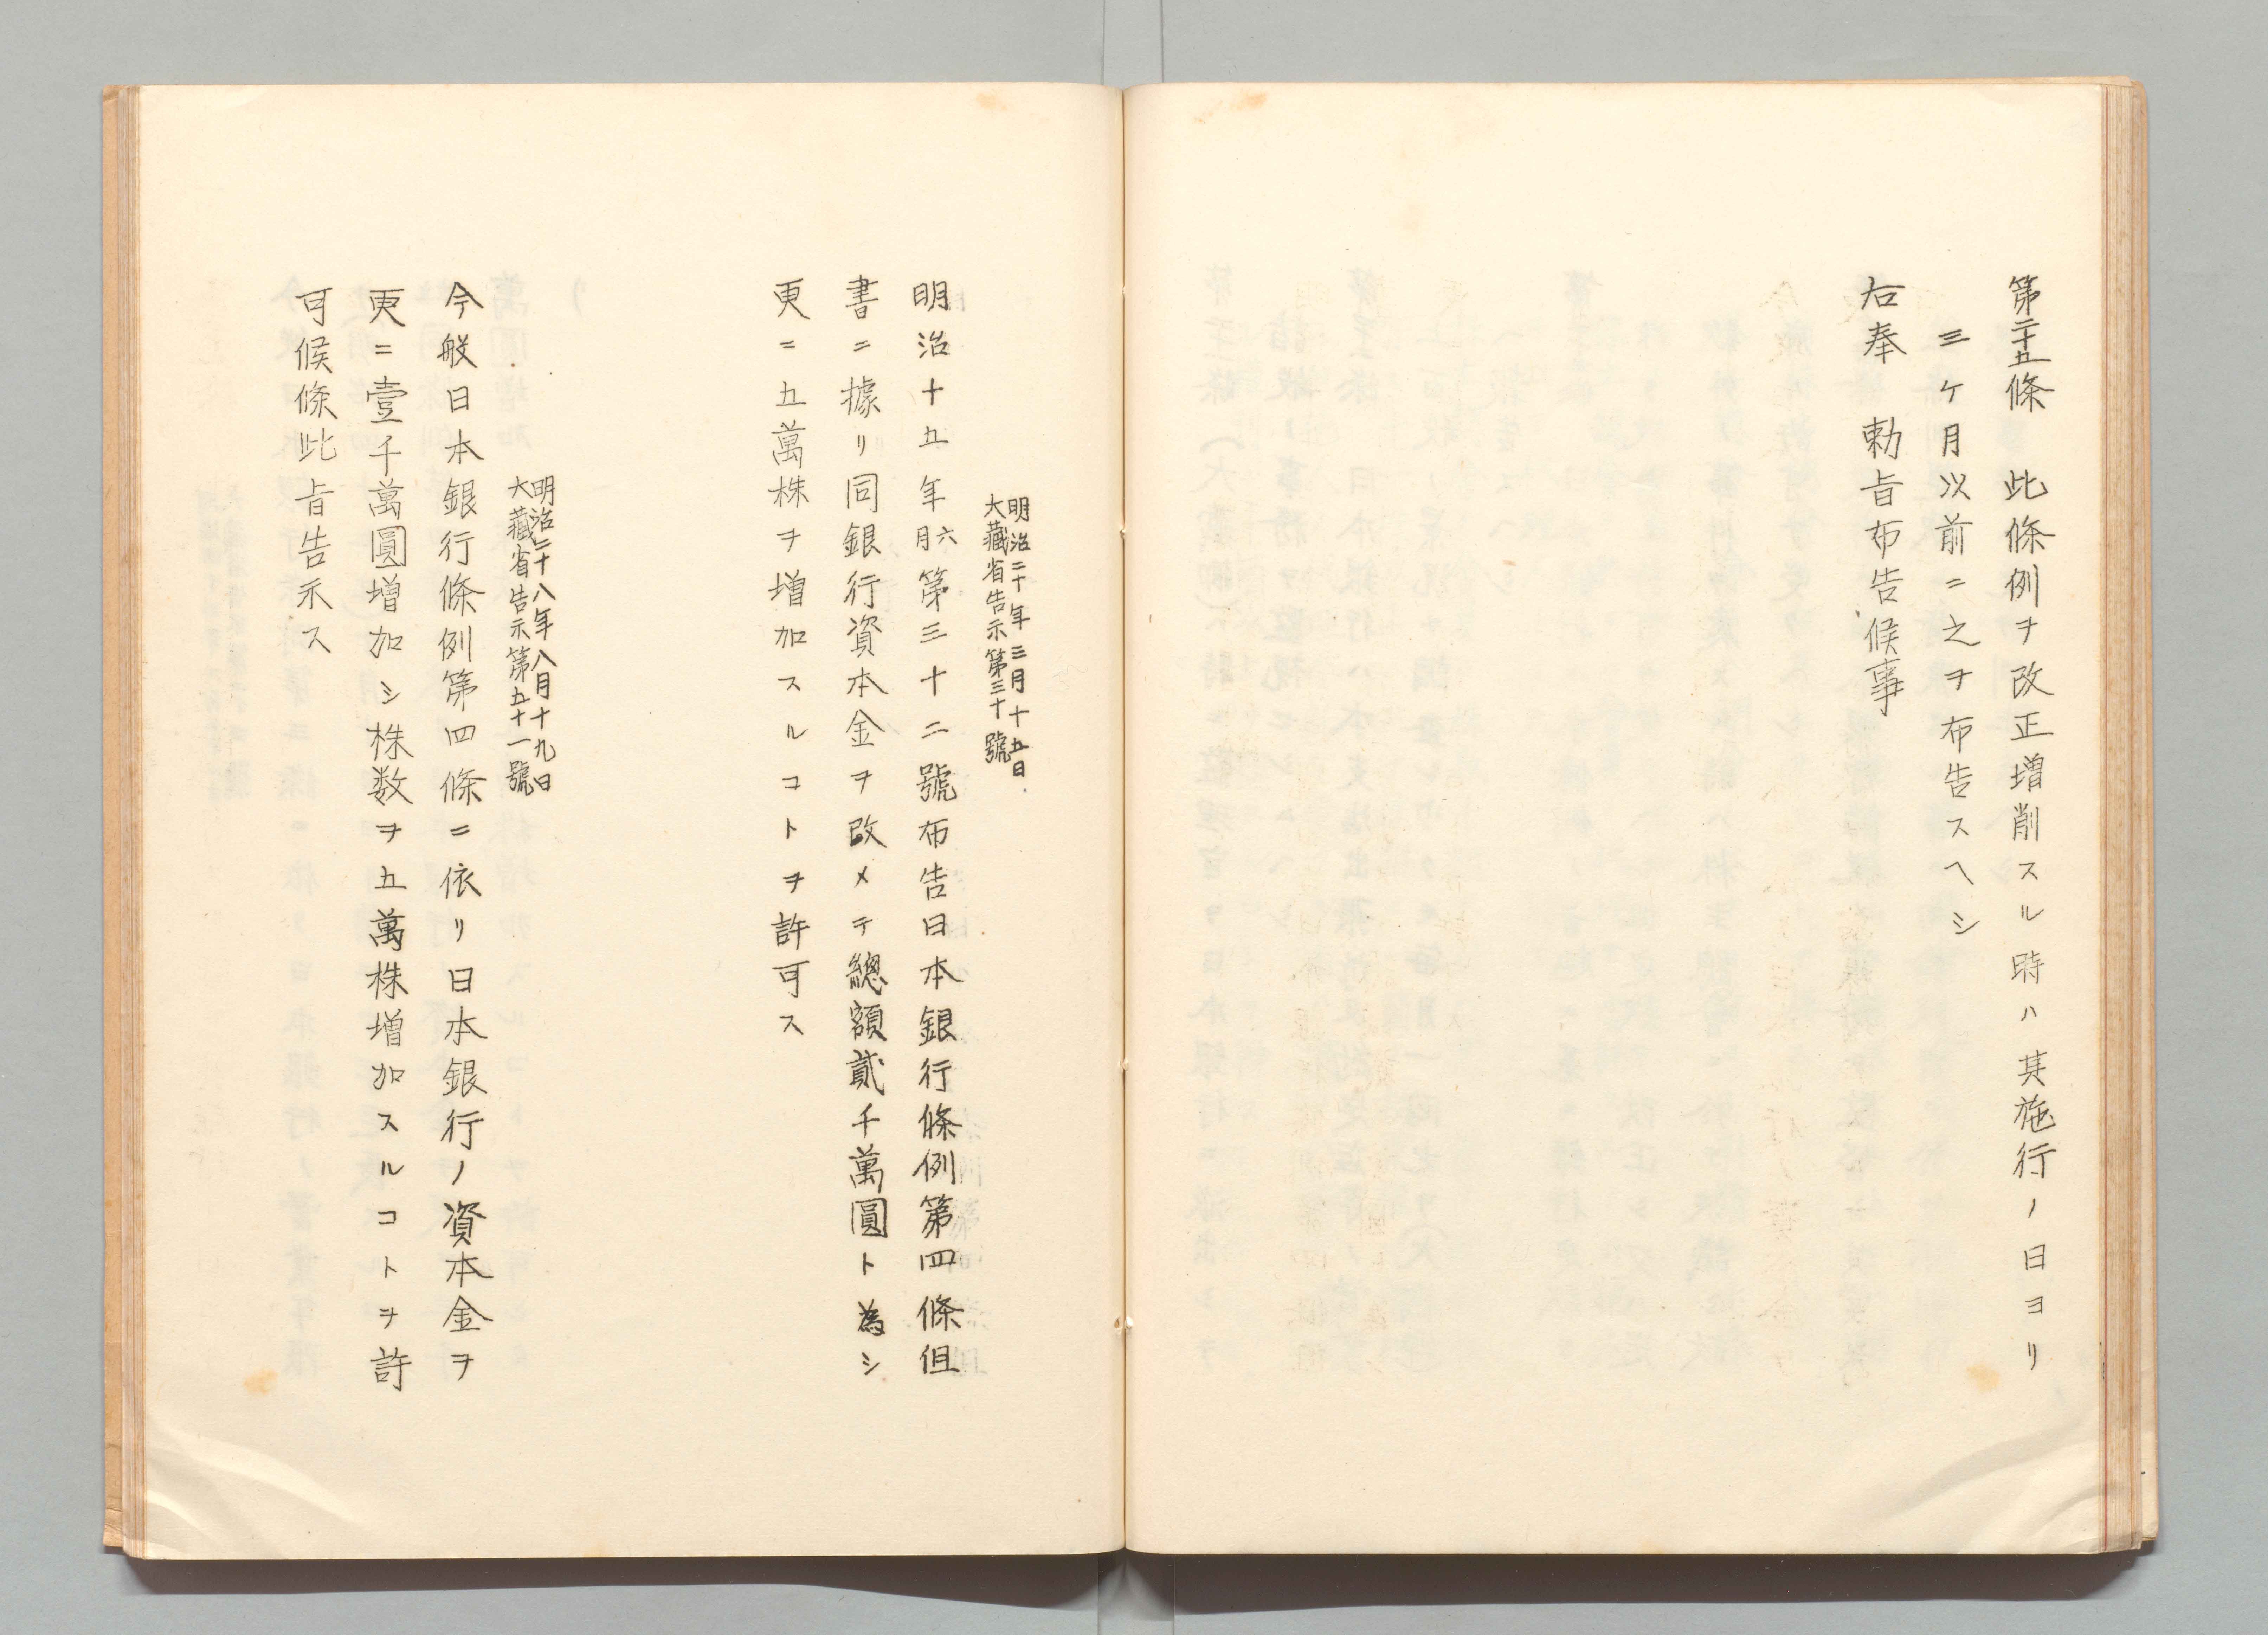 第二十五條　此條例ヲ改正增削スル時ハ其施行ノ日ヨリ
三ヶ月以前ニ之ヲ布告スヘシ
右奉　勅旨布告候事
明治二十年三月十五日
大藏省告示第三十號
明治十五年六月第三十二號布告日本銀行條例第四條但
書ニ據リ同銀行資本金ヲ改メテ總額貳千萬圓ト為シ
更ニ五萬株ヲ增加スルコトヲ許可ス
明治二十八年八月十九日
大藏省告示第五十一號
今般日本銀行條例第四條ニ依リ日本銀行ノ資本金ヲ
更ニ壹千萬圓增加シ株数ヲ五萬株增加スルコトヲ許
可候條此旨告示ス